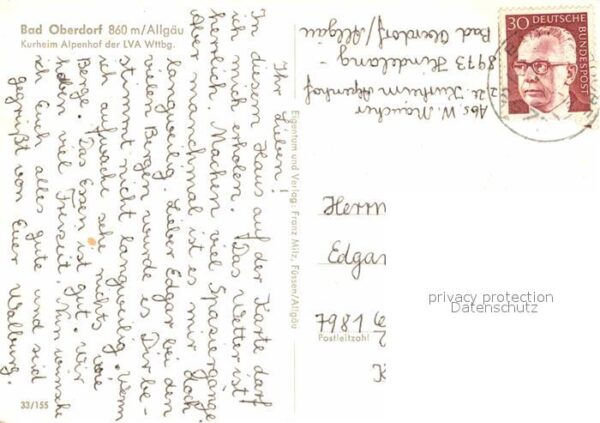 Bad Oberdorf 860 m/Allgäu
Kurheim Alpenhof der LVA Wttbg.
Ihr Lieben!
In diesem Haus auf der Karte darf
ich mich erholen. Das Wetter ist
herrlich. Machen viel Spasiergänge.
Aber manchmal ist es mir doch
langweilig. Lieber Edgar bei den
vielen Bergen würde es Dir be-
stimmt nicht langweilig. Wenn
ich aufwache sehe nichts wie
Berge. Das Essen ist gut. Wir
haben viel Freizeit. Nun wünsche
ich Euch alles gute und seid
gegrüßt von Eurer Walburg.
33/155
Eigentum und Verlag: Franz Milz, Füssen/Allgäu
Abs W.
z. Zt. Kurheim Alpenhof
8973 Hindelang -
Bad Oberdorf/Allgäu
30 DEUTSCHE
BUNDESPOST
Herrn
Edgar
7981
Postleitzahl
privacy protection
Datenschutz